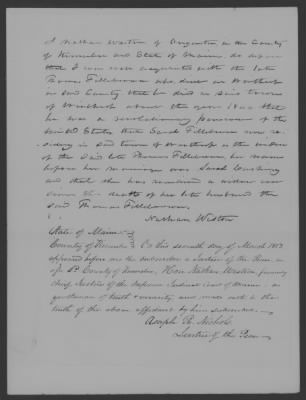 I Nathan Weston of Augusta in the County
of Kennebec and State of Maine, do depose
that I was well acquainted with the late
Thomas Fillebrown who lived in Winthrop
in said County that he died in said town
of Winthrop about the year 1844 that
he was a revolutionary pensioner of the
United States that Sarah Fillebrown now re-
siding in said town of Winthrop is the widow
of the said late Thomas Fillebrown, her name
before her marriage was Sarah Cushing
and that she has remained a widow ever
since the death of her late husband the
said Thomas Fillebrown.
Nathan Weston
State of Maine
County of Kennebec } On this seventh day of March 1853
appeared before me the subscriber a Justice of the Peace in
& for sd County of Kennebec, Hon. Nathan Weston formerly
chief Justice of the Supreme Judicial Court of Maine a
gentleman of truth & veracity and made oath to the
truth of the above affidavit by him subscribed
Asaph R. Nichols
Justice of the Peace